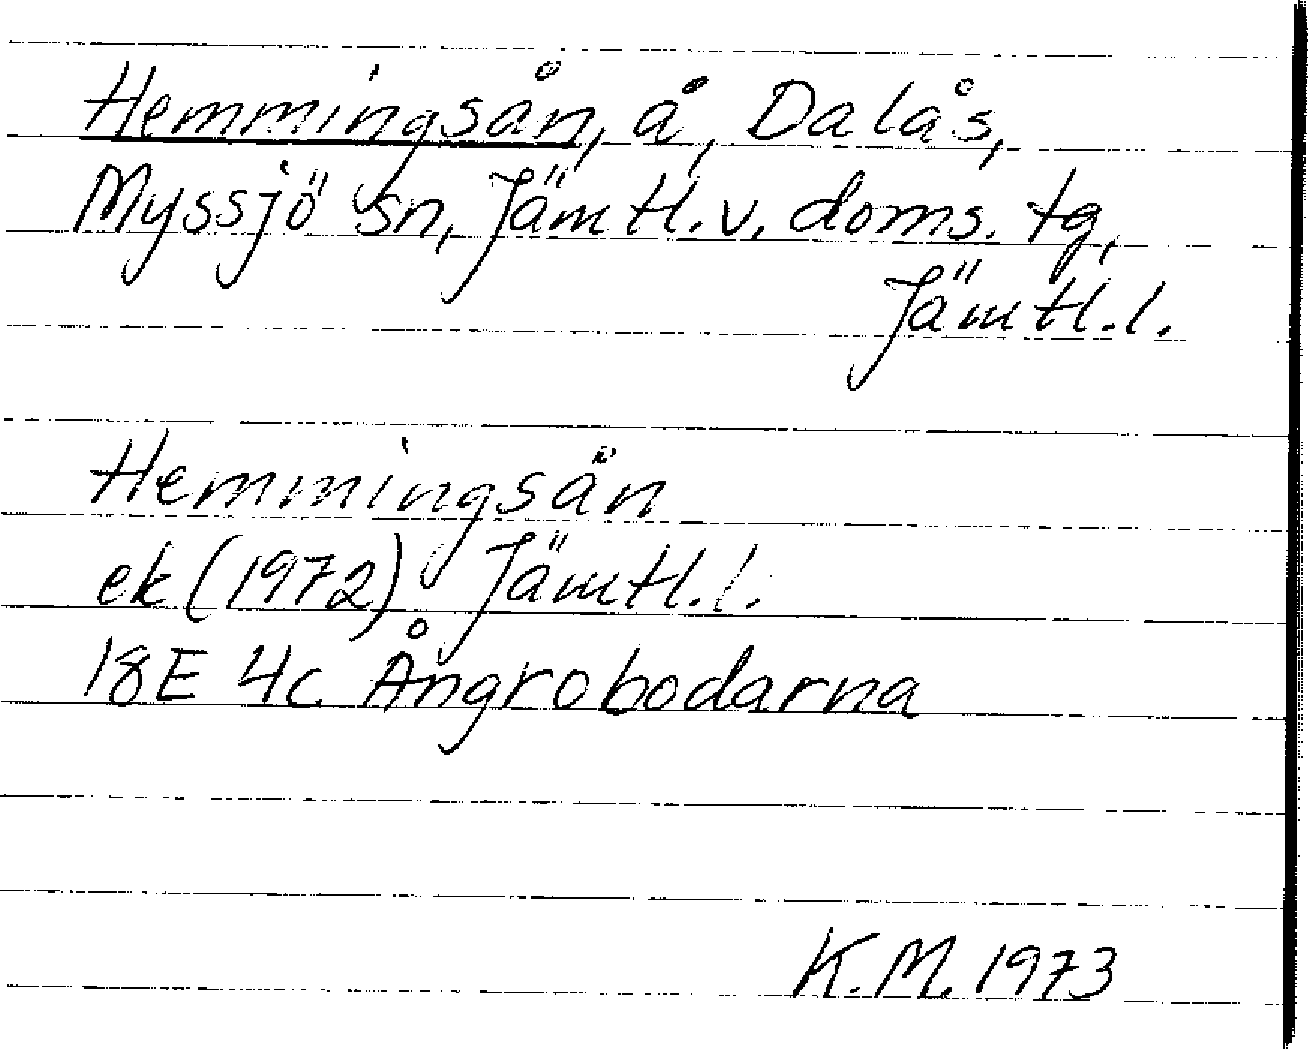 Hemmingsån, å, Dalås,
Myssjö sn, Jämtl. v. doms. tg,
Jämtl. l.
Hemmingsån
ek (1972) Jämtl. l.
18E 4c Ångrobodarna
K.M. 1973